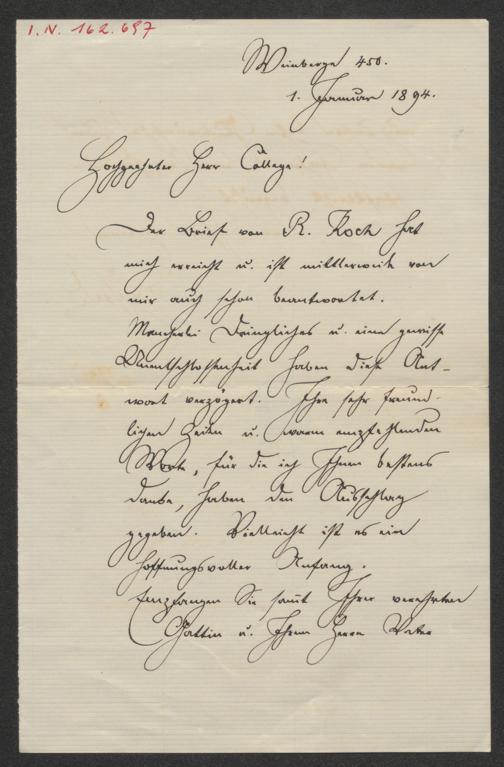 I. N. 162.697
Weinberge 450.
1. Januar 1894.
Hochgeehrter Herr College!
Der Brief von R. Koch hat
mich erreicht u. ist mittlerweile von
mir auch schon beantwortet.
Mancherlei Dringliches u. eine gewisse
Unentschlossenheit haben diese Ant-
wort verzögert. Ihre sehr freund-
lichen Zeilen u. warm empfehlenden
Worte, für die ich Ihnen bestens
danke, haben den Ausschlag
gegeben. Vielleicht ist es ein
hoffnungsvoller Anfang.
Empfangen Sie samt Ihrer verehrten
Gattin u. Ihrem Herrn Vater